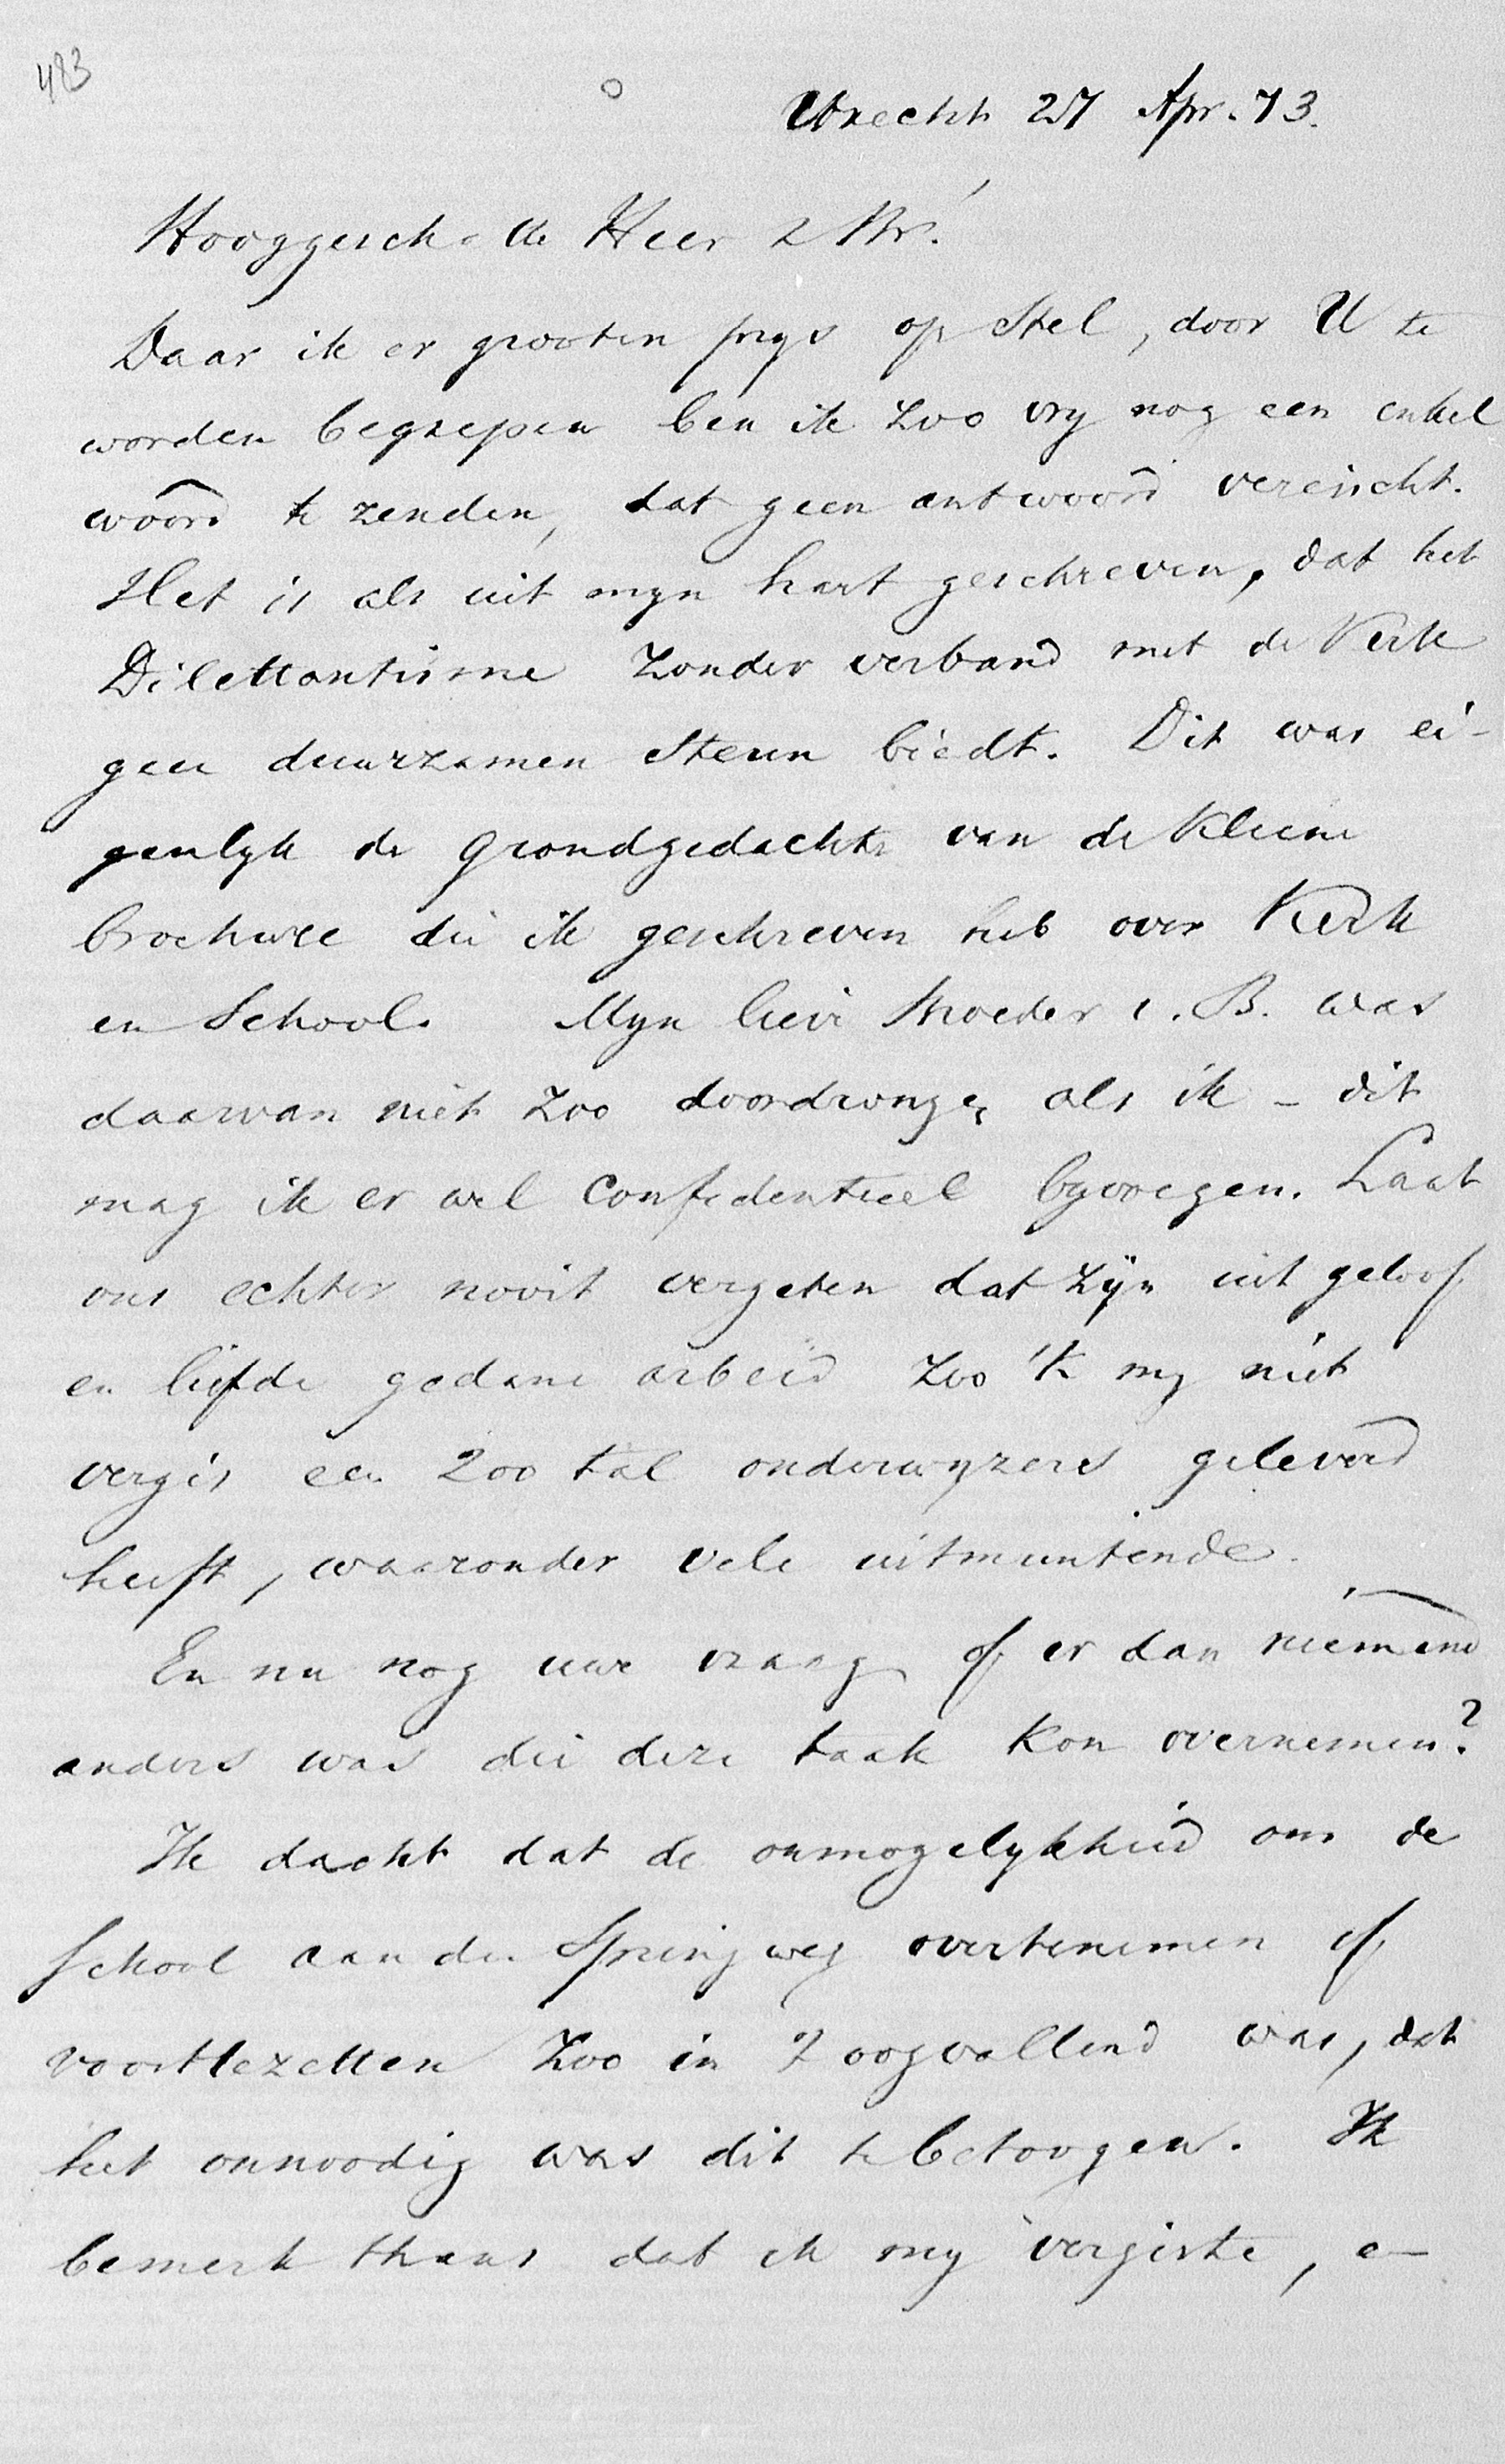 483
Utrecht 27 Apr. 73.
Hooggesch. de Heer & Br!
Daar ik er grooten prys op stel, door U te
worden begrepen ben ik zoo vry nog een enkel
woord te zenden, dat geen antwoord vereischt.
Het is als uit myn hart geschreven, dat het
Dilettantisme zonder verband met de Kerk
geen duurzamen steun biedt. Dit was ei-
genlyk de grondgedachte van de kleine
brochure die ik geschreven heb over Kerk
en School. Myn lieve Broeder v. B. was
daarvan niet zoo doordrongen als ik - dit
mag ik er wel confidentieel byvoegen. Laat
ons echter nooit vergeten dat zyn uit geloof
en liefde gedane arbeid zoo 'k my niet
vergis een 200 tal onderwyzers geleverd
heeft, waaronder vele uitmuntende.
En nu nog uwe vraag of er dan niemand
anders was die deze taak kon overnemen?
Ik dacht dat de onmogelykheid om de
School aan den Springweg overtenemen of
voorttezetten zoo in 't oogvallend was, dat
het onnoodig was dit te betoogen. Ik
bemerk thans dat ik my vergiste, en